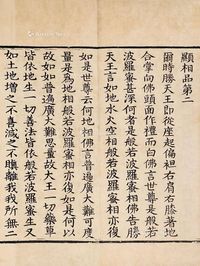 顯相品第二
爾時勝天王即從座起偏袒右肩右膝著地
合掌向佛頭面作禮而白佛言世尊是般若
波羅蜜甚深何者是般若波羅蜜相佛告勝
天王言如地水火空相般若波羅蜜相亦復
如是世尊云何地相佛言普遍廣大難可度
量是為地相般若波羅蜜相亦復如是何以
故如如普遍廣大難思量故大王一切藥草
皆依地生一切善法皆依般若波羅蜜生又
如土地增之不喜減之不瞋離我我所無二